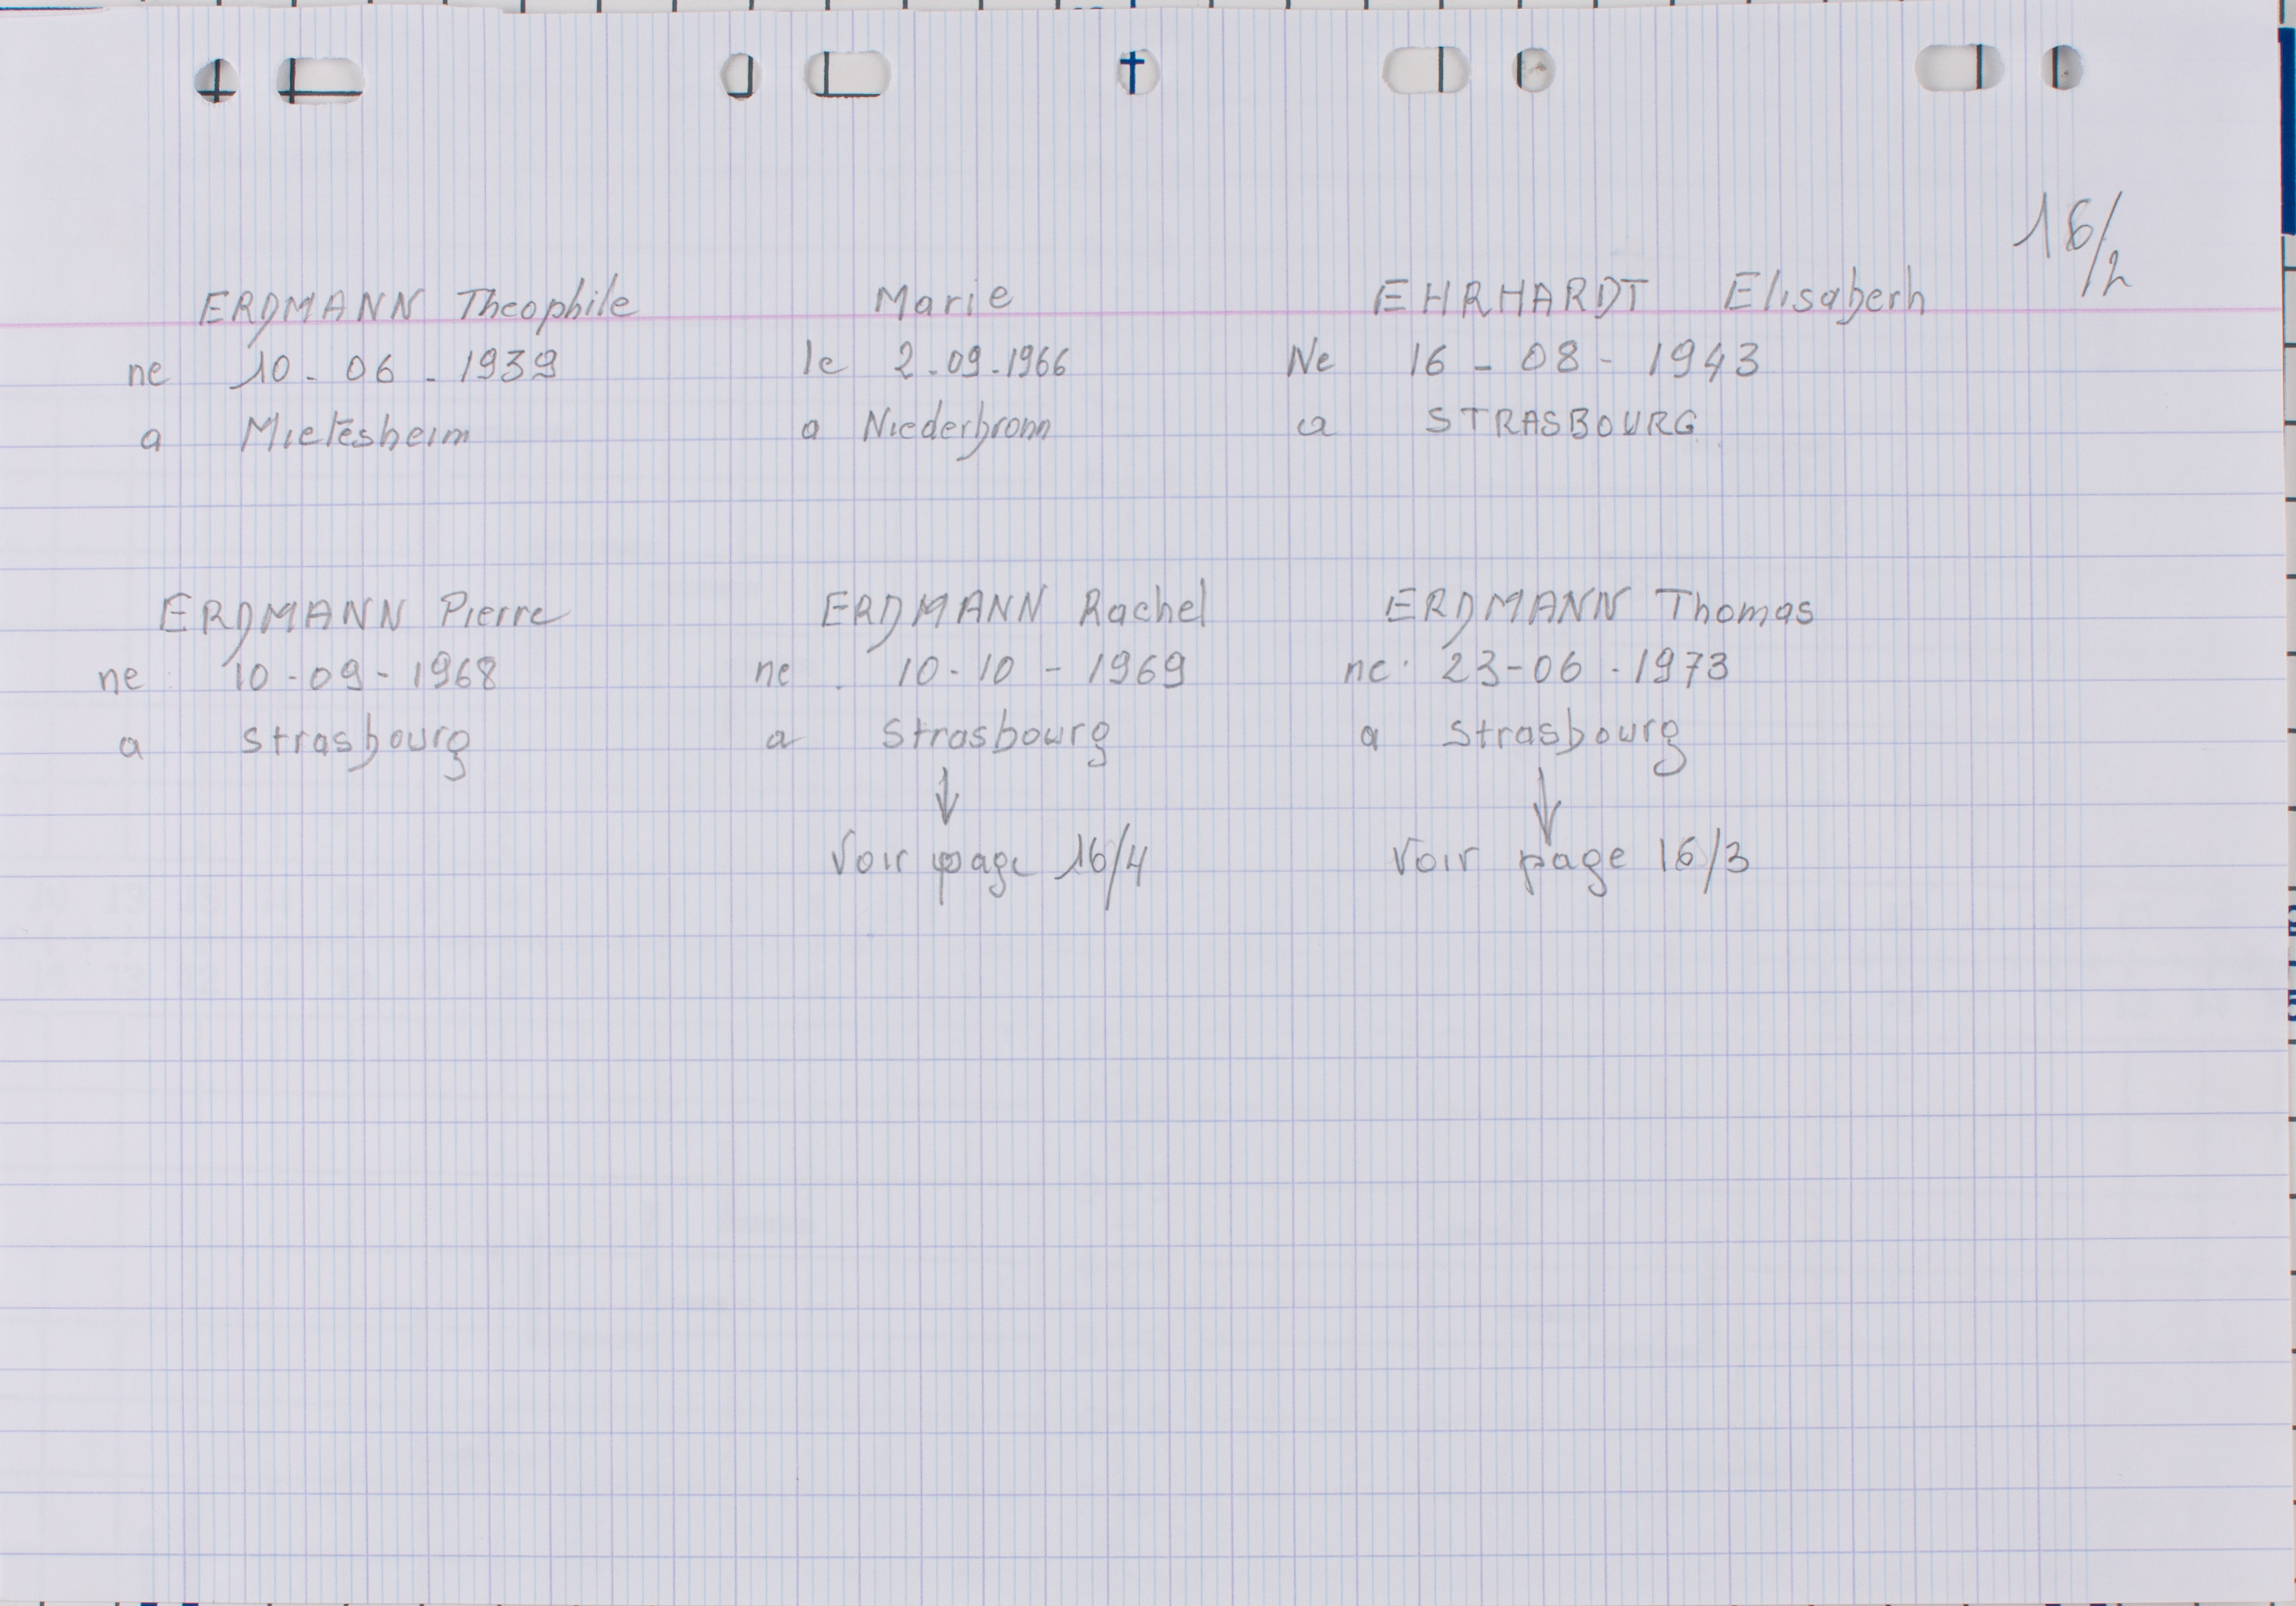 16/2
ERDMANN Theophile Marie EHRHARDT Elisaberh
ne 10-06-1939 le 2-09-1966 Ne 16-08-1943
a Mietesheim a Niederbronn a STRASBOURG
ERDMANN Pierre ERDMANN Rachel ERDMANN Thomas
ne 10-09-1968 ne 10-10-1969 ne 23-06-1973
a Strasbourg a Strasbourg a Strasbourg
Voir page 16/4 Voir page 16/3